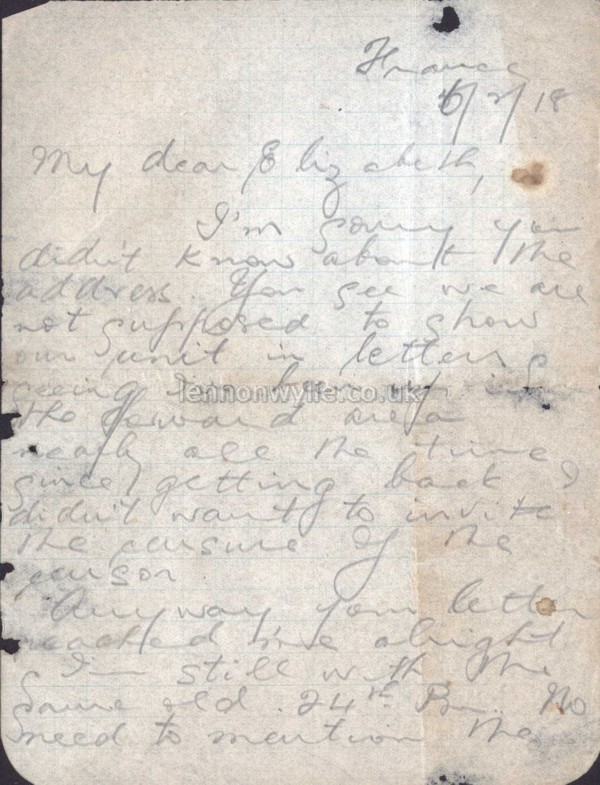 France
6/2/18
My dear Elizabeth,
I'm sorry you
didn't know about the
address. You see we are
not supposed to show
our unit in letters
seeing I've been up in
lennonwylie.co.uk
the forward area
nearly all the time
since getting back I
didn't want to invite
the censure of the
censor
Anyway your letter
reached me alright
I'm still with the
same old 24th Bn. No
need to mention the